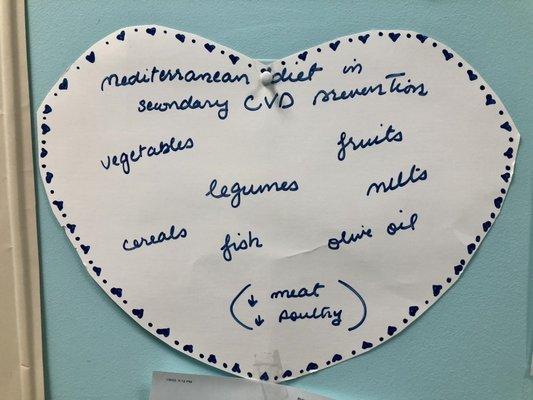 mediterranean diet in
secondary CVD prevention
vegetables
fruits
legumes
nuts
cereals
fish
olive oil
(↓ meat
↓ poultry)